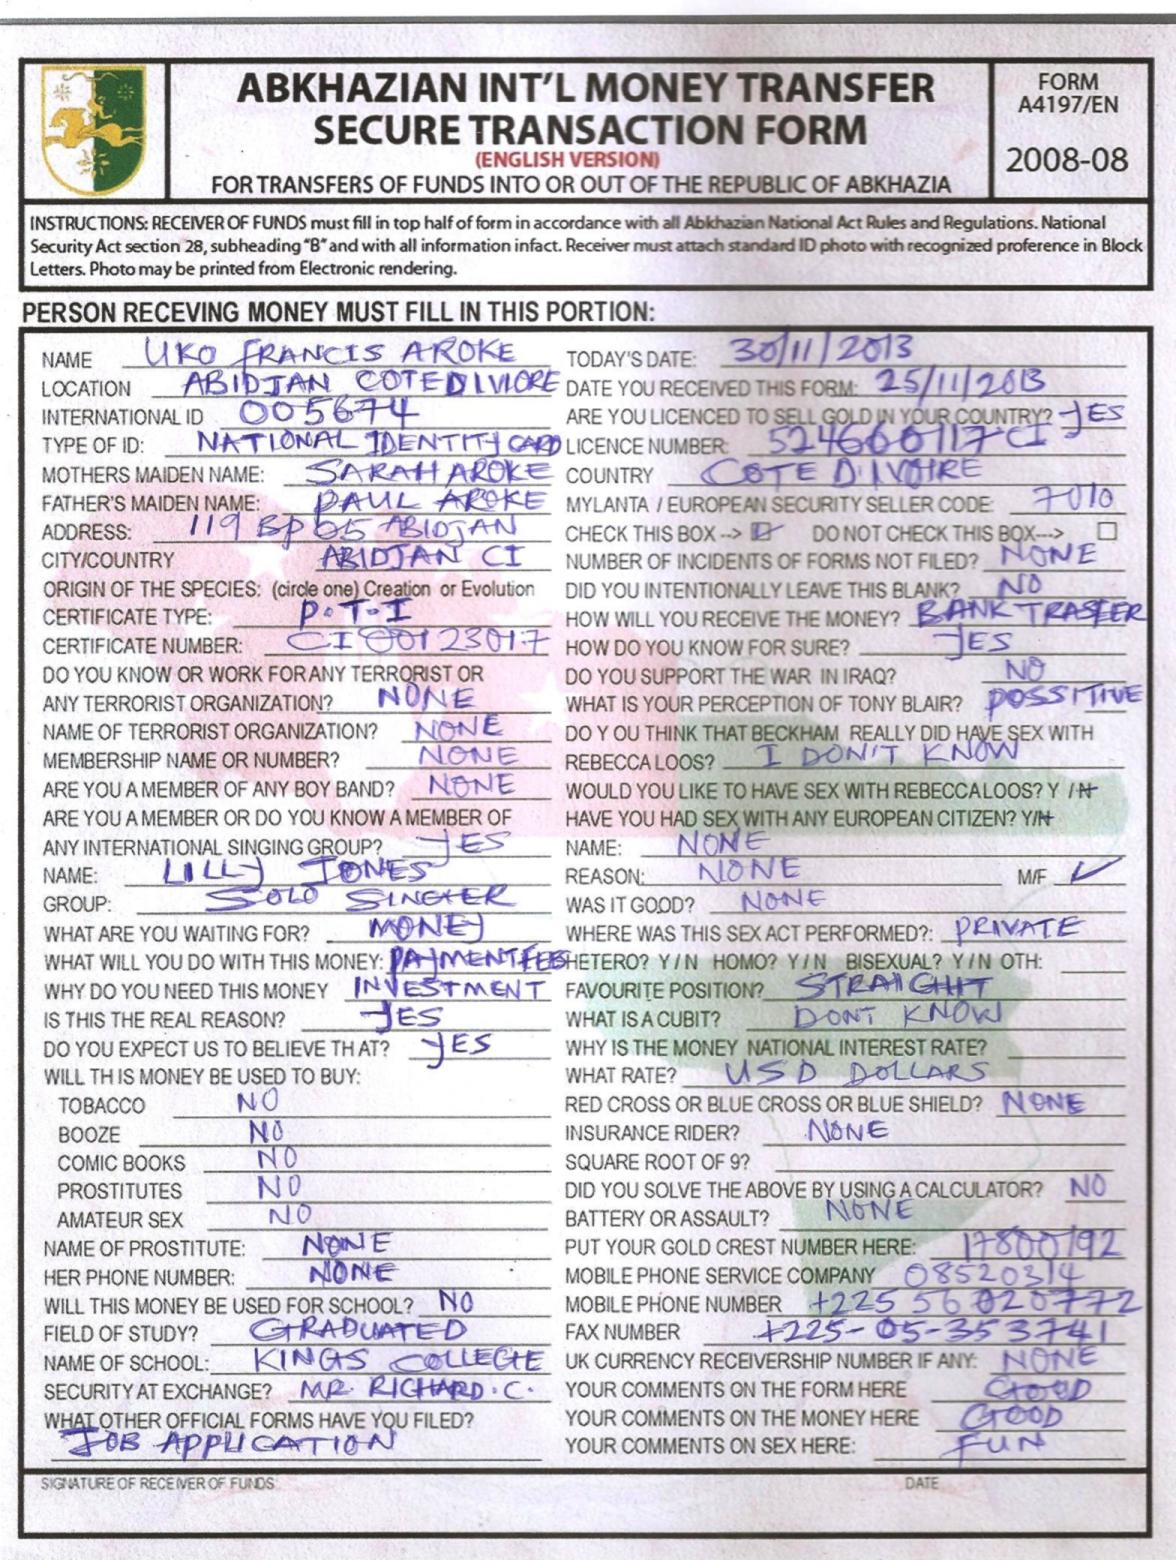 ABKHAZIAN INT'L MONEY TRANSFER
SECURE TRANSACTION FORM
(ENGLISH VERSION)
FOR TRANSFERS OF FUNDS INTO OR OUT OF THE REPUBLIC OF ABKHAZIA
FORM
A4197/EN
2008-08
INSTRUCTIONS: RECEIVER OF FUNDS must fill in top half of form in accordance with all Abkhazian National Act Rules and Regulations. National
Security Act section 28, subheading "B" and with all information infact. Receiver must attach standard ID photo with recognized proference in Block
Letters. Photo may be printed from Electronic rendering.
PERSON RECEVING MONEY MUST FILL IN THIS PORTION:
NAME UKO FRANCIS AROKE
LOCATION ABIDJAN COTEDIVIORE
INTERNATIONAL ID 005674
TYPE OF ID: NATIONAL IDENTITY CARD
MOTHERS MAIDEN NAME: SARAH AROKE
FATHER'S MAIDEN NAME: PAUL AROKE
ADDRESS: 119 Bp 65 ABIDJAN
CITY/COUNTRY ABIDJAN CI
ORIGIN OF THE SPECIES: (circle one) Creation or Evolution
CERTIFICATE TYPE: P.T.I
CERTIFICATE NUMBER: CI00123017
DO YOU KNOW OR WORK FOR ANY TERRORIST OR
ANY TERRORIST ORGANIZATION? NONE
NAME OF TERRORIST ORGANIZATION? NONE
MEMBERSHIP NAME OR NUMBER? NONE
ARE YOU A MEMBER OF ANY BOY BAND? NONE
ARE YOU A MEMBER OR DO YOU KNOW A MEMBER OF
ANY INTERNATIONAL SINGING GROUP? YES
NAME: LILLY JONES
GROUP: SOLO SINGER
WHAT ARE YOU WAITING FOR? MONEY
WHAT WILL YOU DO WITH THIS MONEY: PAYMENT FEES
WHY DO YOU NEED THIS MONEY INVESTMENT
IS THIS THE REAL REASON? YES
DO YOU EXPECT US TO BELIEVE THAT? YES
WILL THIS MONEY BE USED TO BUY:
TOBACCO NO
BOOZE NO
COMIC BOOKS NO
PROSTITUTES NO
AMATEUR SEX NO
NAME OF PROSTITUTE: NONE
HER PHONE NUMBER: NONE
WILL THIS MONEY BE USED FOR SCHOOL? NO
FIELD OF STUDY? GRADUATED
NAME OF SCHOOL: KINGS COLLEGE
SECURITY AT EXCHANGE? MR. RICHARD.C.
WHAT OTHER OFFICIAL FORMS HAVE YOU FILED?
JOB APPLICATION
TODAY'S DATE: 30/11/2013
DATE YOU RECEIVED THIS FORM: 25/11/2013
ARE YOU LICENCED TO SELL GOLD IN YOUR COUNTRY? YES
LICENCE NUMBER: 524660117-CI
COUNTRY COTE D'IVOIRE
MYLANTA / EUROPEAN SECURITY SELLER CODE: 7010
CHECK THIS BOX --> DO NOT CHECK THIS BOX--->
NUMBER OF INCIDENTS OF FORMS NOT FILED? NONE
DID YOU INTENTIONALLY LEAVE THIS BLANK? NO
HOW WILL YOU RECEIVE THE MONEY? BANK TRASFER
HOW DO YOU KNOW FOR SURE? YES
DO YOU SUPPORT THE WAR IN IRAQ? NO
WHAT IS YOUR PERCEPTION OF TONY BLAIR? POSSITIVE
DO Y OU THINK THAT BECKHAM REALLY DID HAVE SEX WITH
REBECCA LOOS? I DON'T KNOW
WOULD YOU LIKE TO HAVE SEX WITH REBECCA LOOS? Y / N
HAVE YOU HAD SEX WITH ANY EUROPEAN CITIZEN? Y/N
NAME: NONE
REASON: NONE M/F
WAS IT GOOD? NONE
WHERE WAS THIS SEX ACT PERFORMED?: PRIVATE
HETERO? Y/N HOMO? Y/N BISEXUAL? Y/N OTH:
FAVOURITE POSITION? STRAIGHT
WHAT IS A CUBIT? DONT KNOW
WHY IS THE MONEY NATIONAL INTEREST RATE?
WHAT RATE? USD DOLLARS
RED CROSS OR BLUE CROSS OR BLUE SHIELD? NONE
INSURANCE RIDER? NONE
SQUARE ROOT OF 9?
DID YOU SOLVE THE ABOVE BY USING A CALCULATOR? NO
BATTERY OR ASSAULT? NONE
PUT YOUR GOLD CREST NUMBER HERE: 17800192
MOBILE PHONE SERVICE COMPANY 08520314
MOBILE PHONE NUMBER +225 56020772
FAX NUMBER +225-05-353741
UK CURRENCY RECEIVERSHIP NUMBER IF ANY: NONE
YOUR COMMENTS ON THE FORM HERE GOOD
YOUR COMMENTS ON THE MONEY HERE GOOD
YOUR COMMENTS ON SEX HERE: FUN
SIGNATURE OF RECEIVER OF FUNDS
DATE